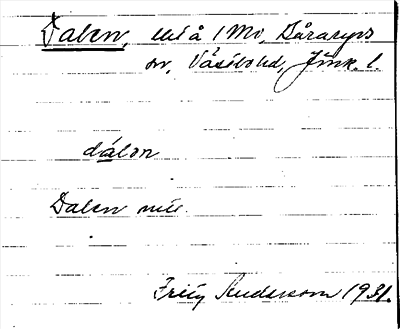 Dalen, utä 1 Mv, Båraryds
sn, Västbo hd, Jönk. l.
dálon
Dalen nil.
Fritz Anderson 1931.